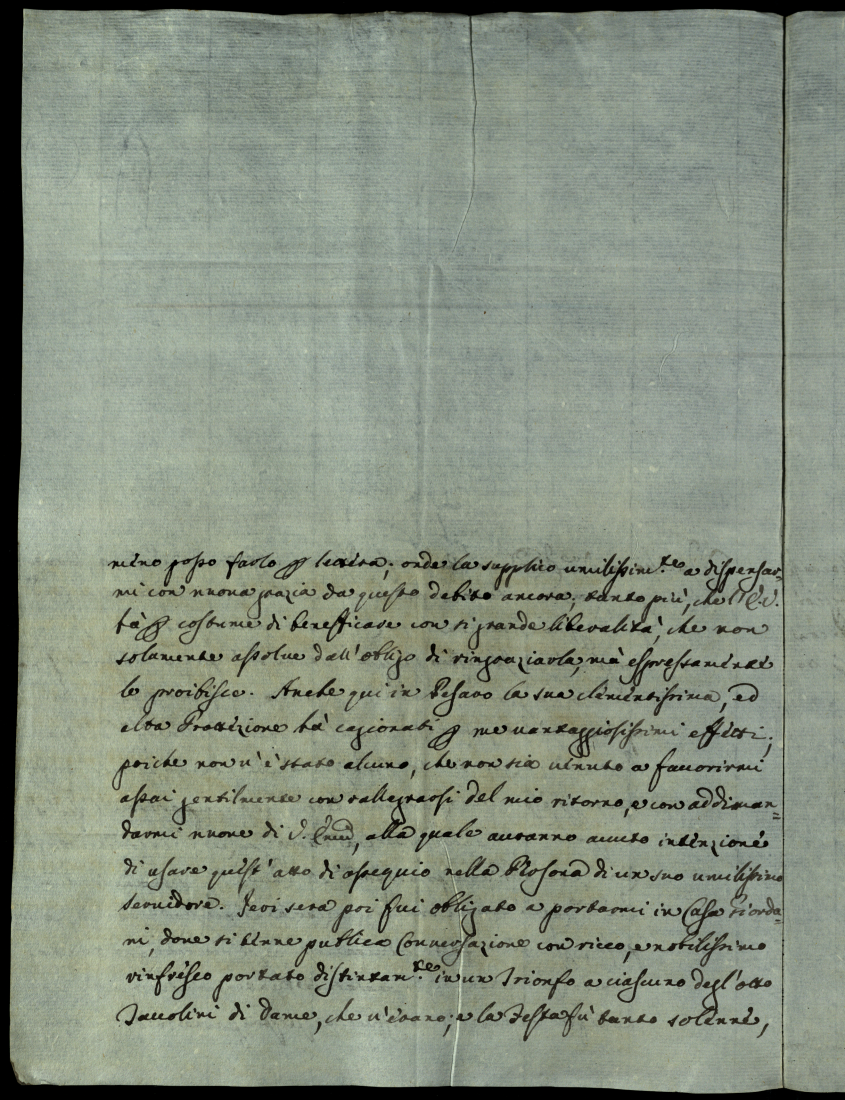 meno posso farlo per lettera; onde la supplico umilissim.te a dispensar=
mi con nuova grazia da questo debito ancora; tanto più, che l'E.V.
hà per costume di beneficare con sì grande liberalità, che non
solamente assolve dall'obligo di ringraziarla, mà espressamente
lo proibisce. Anche qui in Pesaro la sua clementissima, ed
alta Protezione hà cagionati per me vantaggiosissimi effetti;
poiche non v'è stato alcuno, che non sia venuto a favorirmi
assai gentilmente con rallegrarsi del mio ritorno, e con addiman=
darmi nuove di V. Em̃, alla quale avranno avuto intenzione
di usare quest'atto di ossequio nella Persona di un suo umilissimo
servidore. Jeri sera poi fui obligato a portarmi in Casa Giorda=
ni, dove si tenne publica Conversazione con ricco, e nobilissimo
rinfresco portato distintam.te in un Trionfo a ciascuno degl'otto
Tavolini di Dame, che v'erano; e la Festa fù tanto solenne,